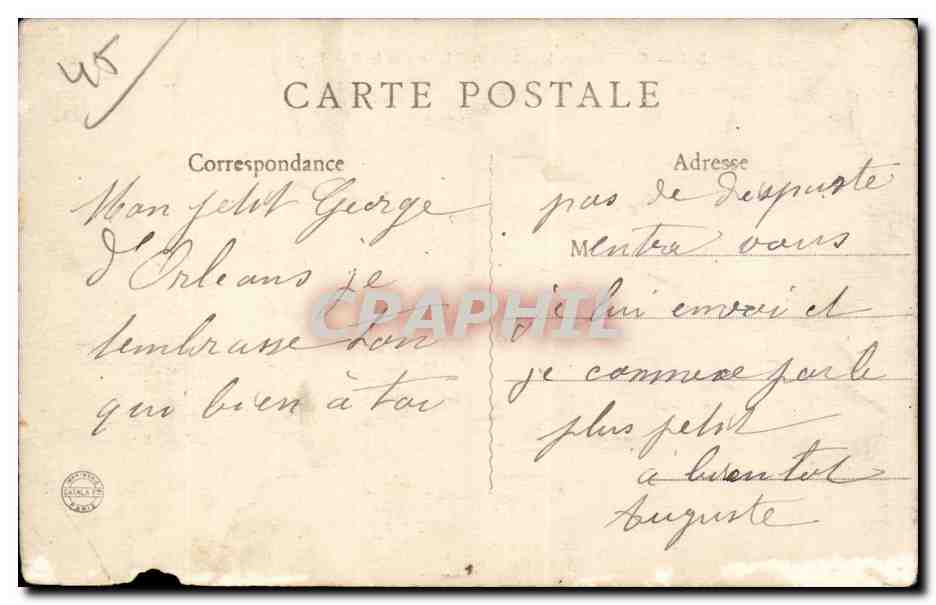 45
CARTE POSTALE
Correspondance
Mon petit George
d'Orleans je
tembrasse ton
qui bien à toi
Adresse
pas de dispuste
M entra vous
je lui envoi et
je commence par le
plus petit
a bientot
Auguste
CPAPHIL
CATALA FR.
PARIS